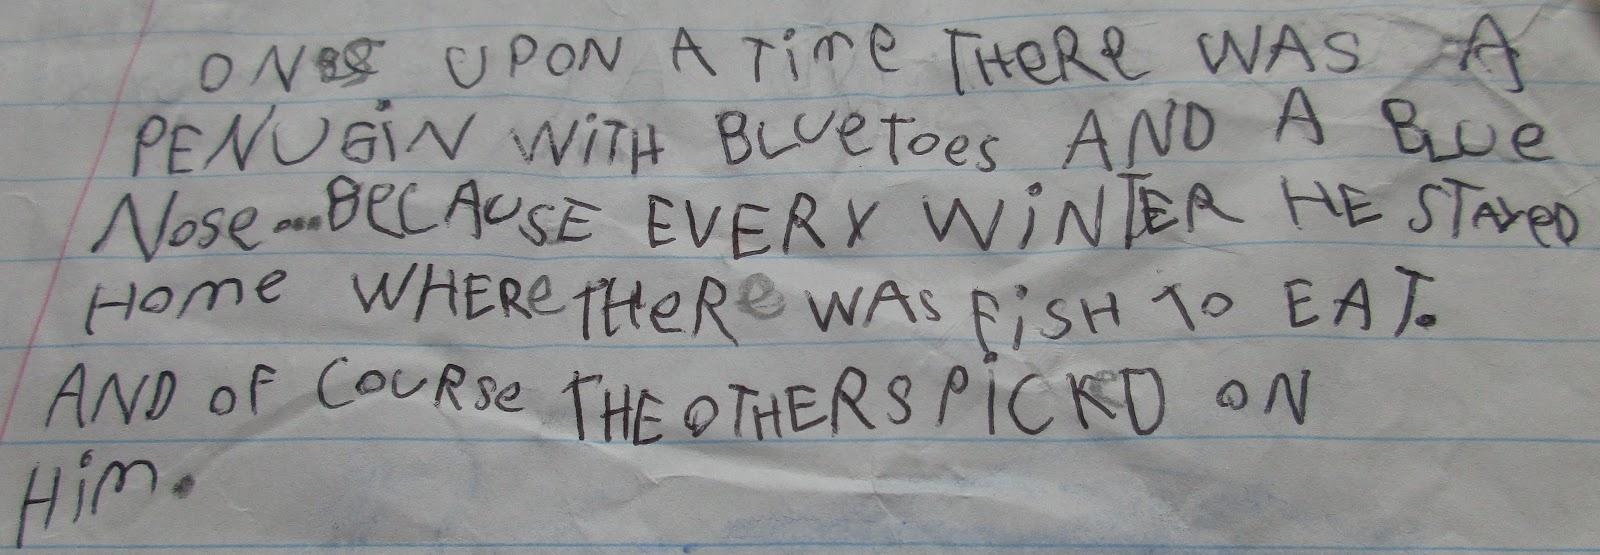 ONCE UPON A TIMe THeRe WAS A
PENUGiN WiTH BLUe Toes AND A BLUe
Nose...BeCAUSE EVERY WiNTER HE STAYeD
Home WHERe THeRe WAS FiSH To EAT.
AND OF COURSe THE OTHERS PiCKD ON
HiM.